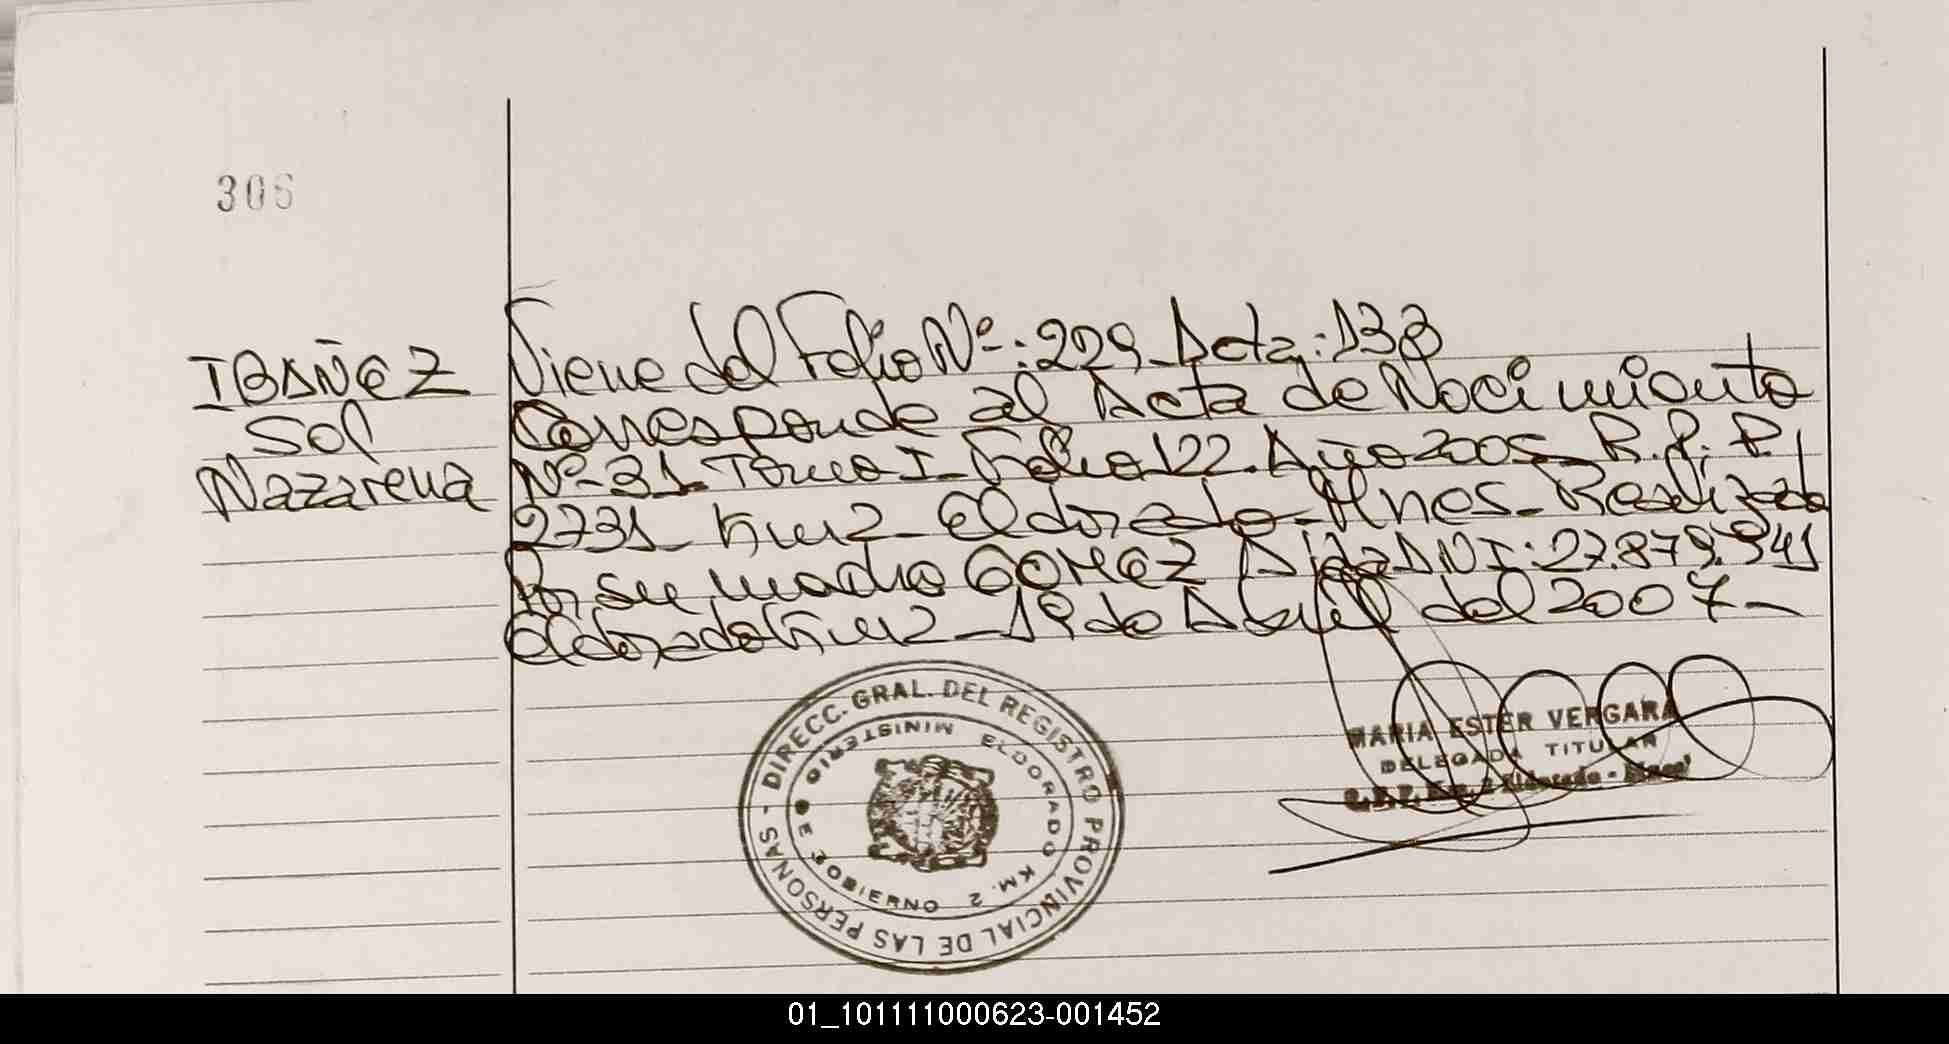 306
IBAÑEZ
Sol
Nazarena
Viene del Folio Nº: 229 Acta: 133
Corresponde al Acta de Nacimiento
Nº 31 Tomo I Folio 122. Año 2005 R.P.P.
2731 Km 2 Eldorado Mnes. Realizada
Por su madre GOMEZ DNI: 27.879.941
Eldorado Km 2 - 19 de Abril del 2007-
DIRECC. GRAL. DEL REGISTRO PROVINCIAL DE LAS PERSONAS -
MINISTERIO DE GOBIERNO
ELDORADO KM. 2
MARIA ESTER VERGARA
DELEGADA TITULAR
Eldorado -
01_101111000623-001452